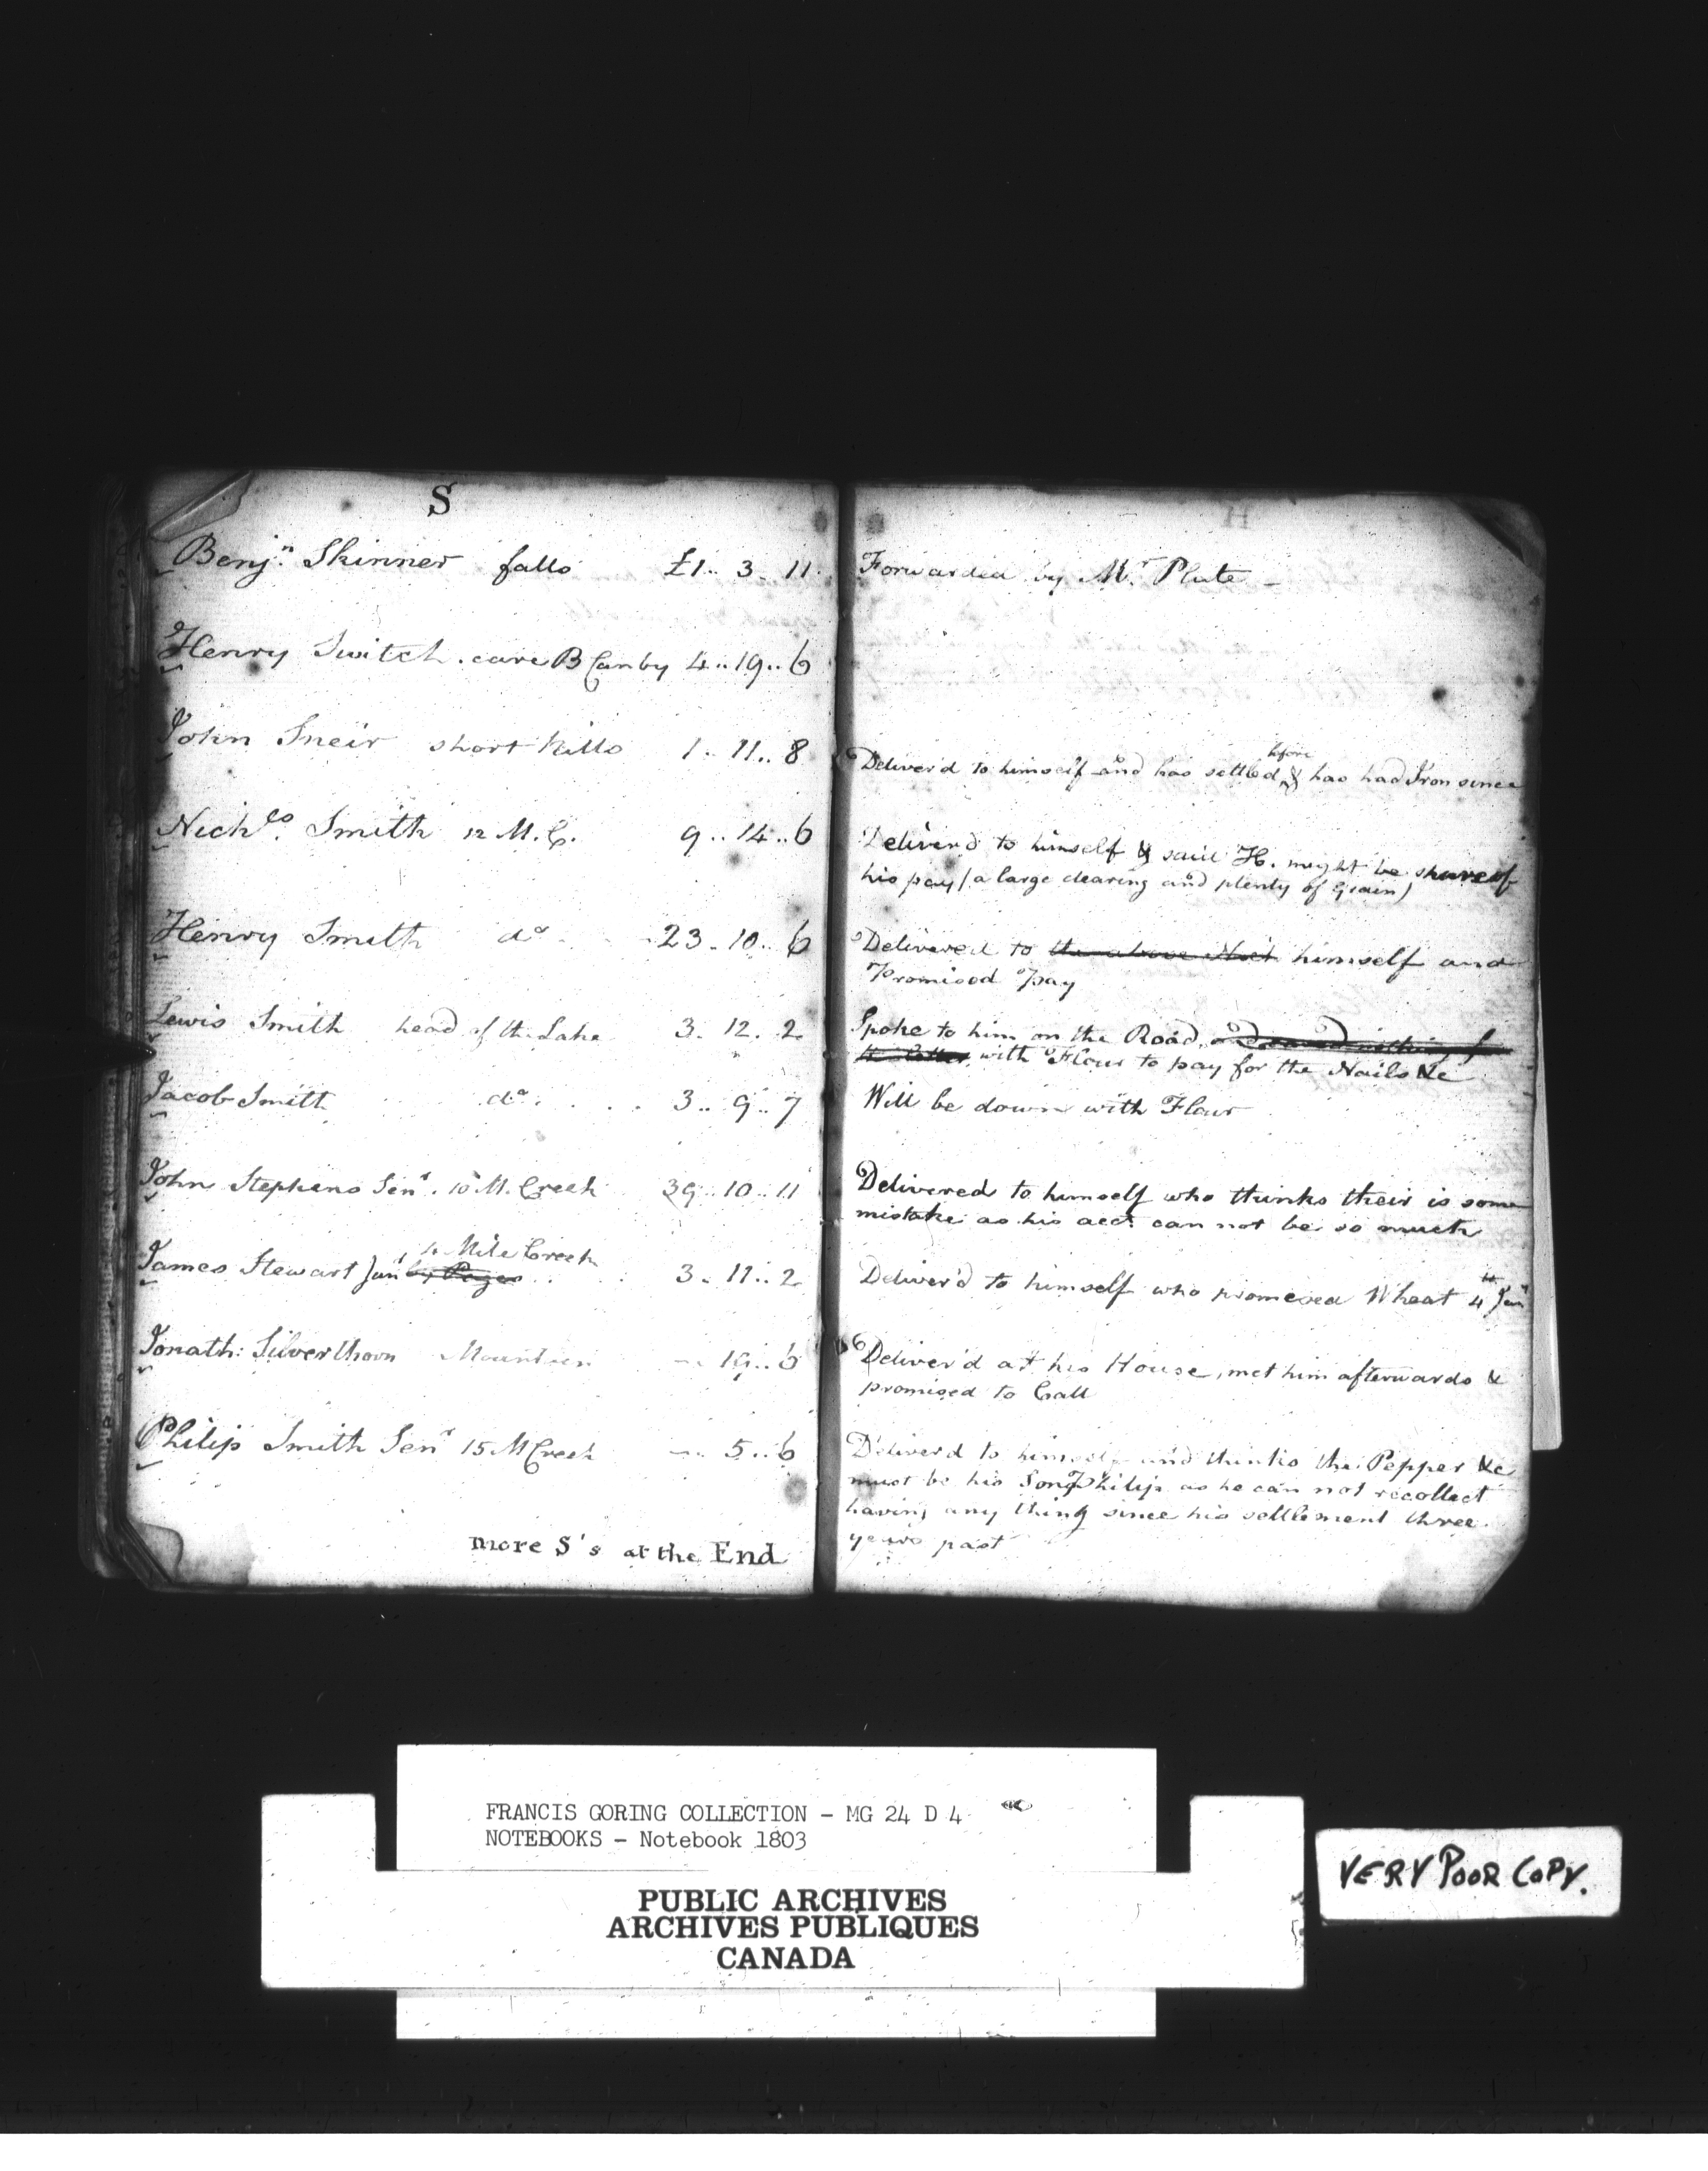 S
Benjn. Skinner falls £1.. 3.. 11
Forwarded by Mr. Plute
Henry Switch. care B Canby 4..19..6
John Sneir short hills 1.. 11.. 8
Deliver'd to himself and has settled before & has had Iron since
Nichls. Smith 12 M.C. 9..14..6
Deliver'd to himself & said H. might be shure of
his pay (a large clearing and plenty of Grain)
Henry Smith do 23..10..6
Delivered to the above Nich himself and
Promised Pay
Lewis Smith head of the Lake 3.. 12.. 2
Spoke to him on the Road, and
with Flour to pay for the Nails &c
Jacob Smith do. 3.. 9.. 7
Will be down with Flour
John Stephens Senr. 10 M. Creek 39..10..11
Delivered to himself who thinks their is some
mistake as his acct. can not be so much
4 Mile Creek
James Stewart Junr 3.. 11.. 2
Deliver'd to himself who promised Wheat 4th Jany
Jonath: Silverthorn Mountain — 19..6
Deliver'd at his House, met him afterwards &
promised to Call
Philip Smith Senr 15 M Creek — 5..6
Deliver'd to himself and thinks the Pepper &c
must be his Son Philip as he can not recollect
having any thing since his settlement three
years past
more S's at the End
FRANCIS GORING COLLECTION - MG 24 D 4
NOTEBOOKS - Notebook 1803
PUBLIC ARCHIVES
ARCHIVES PUBLIQUES
CANADA
VERY POOR COPY.